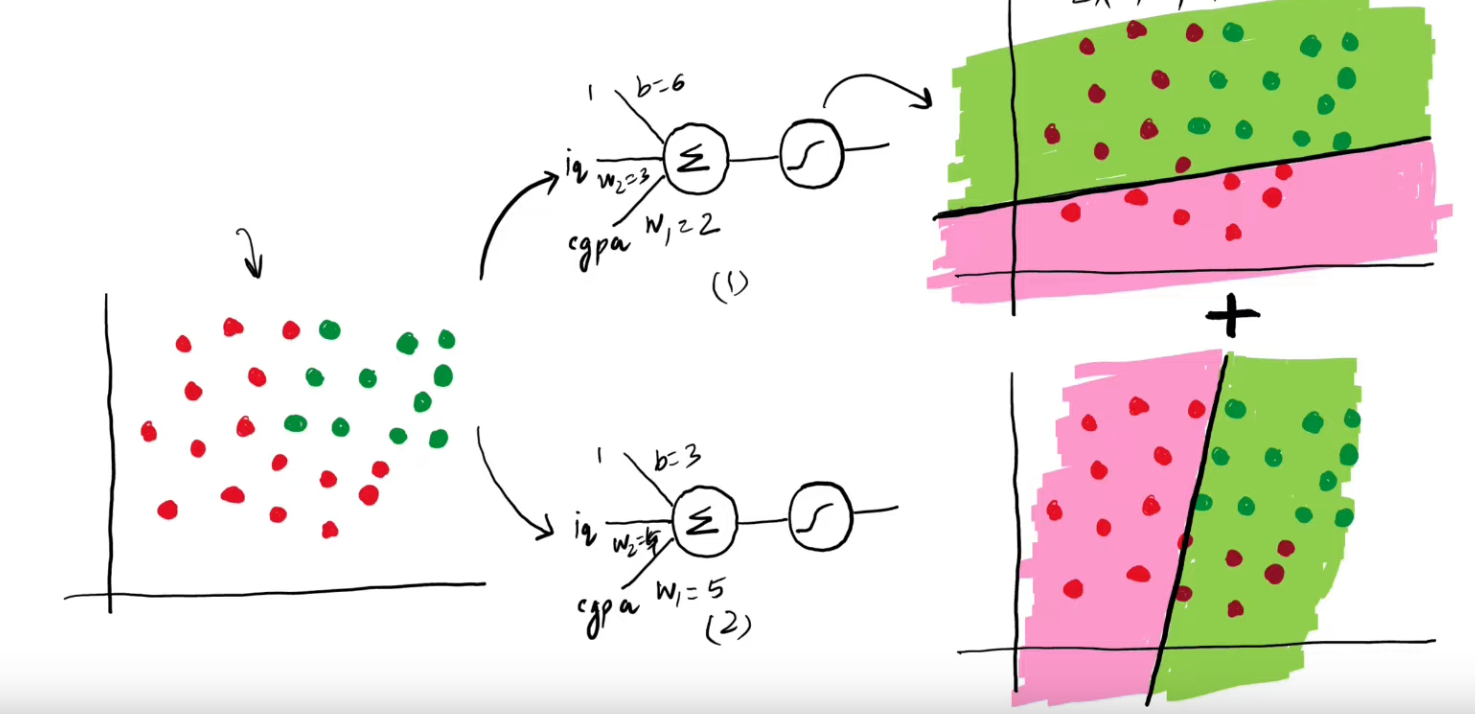 1 b=6
iq w₂=3 Σ
cgpa w₁=2
(1)
+
1 b=3
iq Σ
cgpa w₁=5
(2)